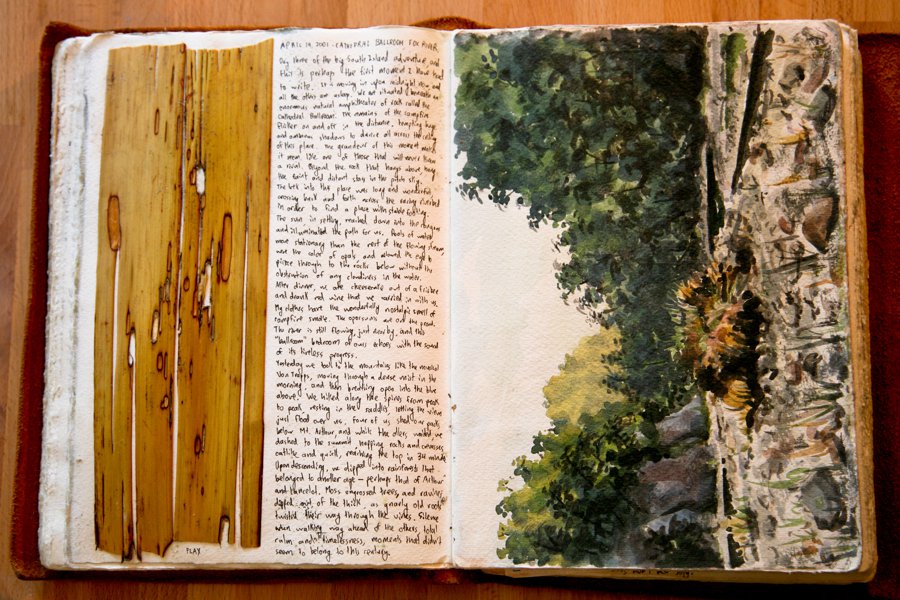 APRIL 19, 2003 - CATHEDRAL BALLROOM FOX RIVER.
Day three of the big South Island adventure and
this is perhaps the first moment I have had
to write. It is moving in upon midnight now, and
all the others are asleep. We are situated beneath an
enormous natural amphitheatre of rock called the
Cathedral Ballroom. The remains of the campfire
flicker on and off in the distance, tempting huge
and ominous shadows to dance all across the ceiling
of this place. The grandeur of this moment makes
it seem like one of those that will never have
a rival. Beyond the rock that hangs above hang
the faint and distant stars in the pitch sky.
The trek into this place was long and wonderful,
crossing back and forth across the river
in order to find a place with stable footing.
The sun in setting, reached down into the
and illuminated the path for us. Pools of water
more stationary than the rest of the flowing stream,
were the color of opals and allowed the eye to
pierce through to the rocks below without the
obstruction of any cloudiness in the water.
After dinner, we ate cheesecake out of a frisbee
and drank red wine that we carried in with us.
My clothes have the wonderfully nostalgic smell of
campfire smoke. The opossums are on the prowl.
The river is still flowing, just nearby, and this
"ballroom" bedroom of ours echoes with the sound
of its tireless progress.
Yesterday we took to the mountains like the
Von Trapps, moving through a dense mist in the
morning, and then breaking open into the blue
above. We hiked along the spires from peak
to peak, resting in the saddles letting the views
just flood over us. Four of us shed our packs
below Mt. Arthur, and while the others waited we
dashed to the summit hopping rocks and crevasses
catlike and quick, reaching the top in 34 minutes.
Upon descending, we dipped into rainforests that
belonged to another age - perhaps that of Arthur
and Lancelot. Moss engrossed trees and ravines
dipped out of the thick, as gnarly old roots
twisted their way through the. Silence
when walking way ahead of the others, total
calm, and timelessness, moments that didn't
seem to belong to this century.
PLAY